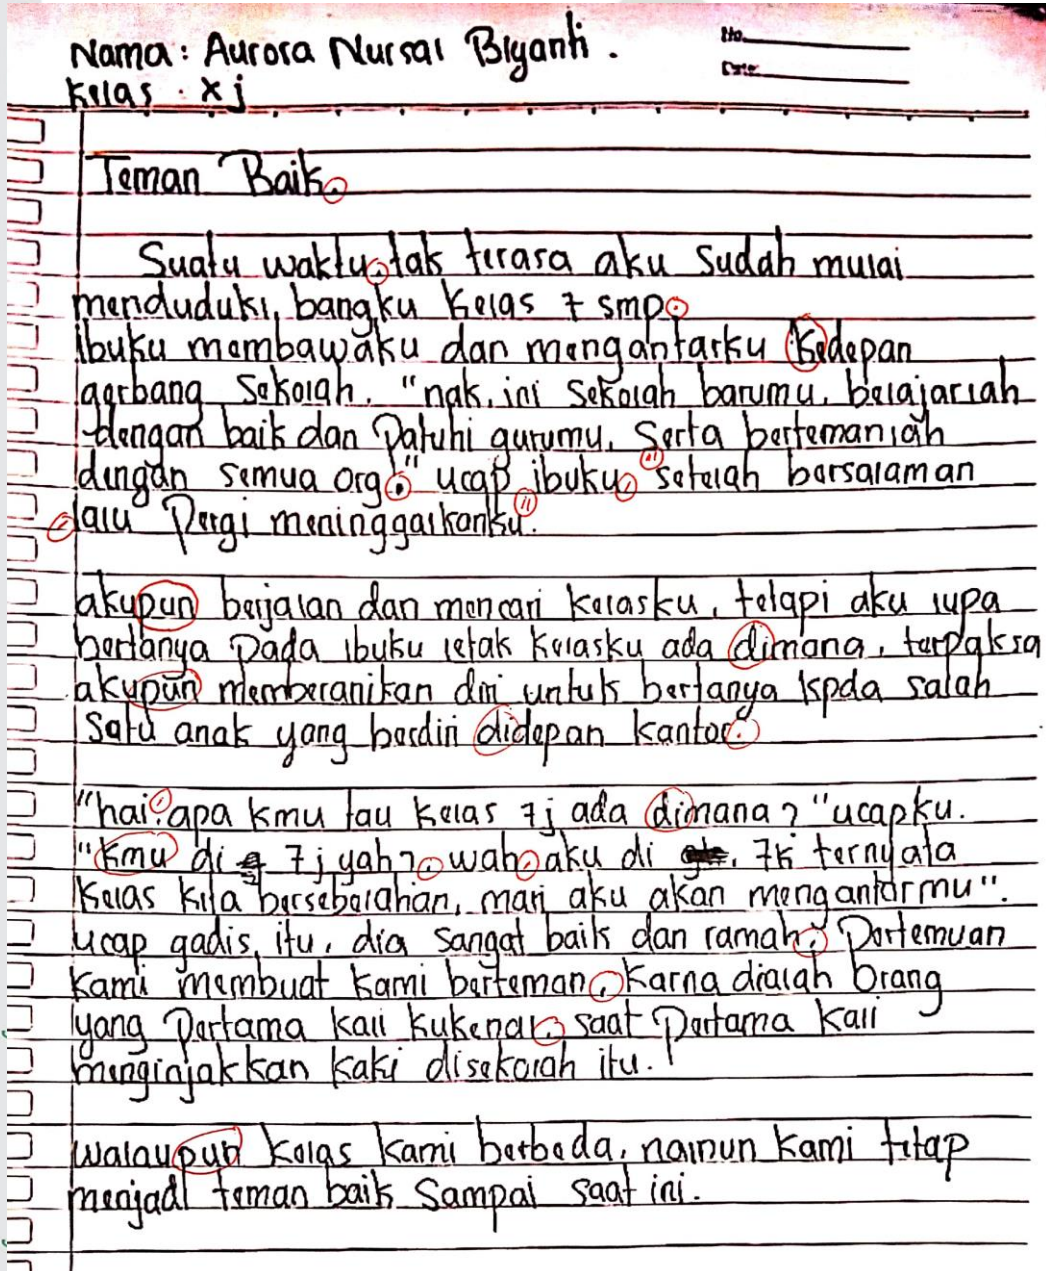 Nama : Aurora Nursai Biyanti .
Kelas : x j
No.
Date
Teman Baik.
Suatu waktu, tak terasa aku sudah mulai
menduduki bangku kelas 7 smp.
ibuku membawaku dan mengantarku kedepan
gerbang sekolah. "nak, ini sekolah barumu, belajarlah
dengan baik dan patuhi gurumu, serta bertemanlah
dengan semua org." ucap ibuku, setelah bersalaman
lalu pergi meninggalkanku.
akupun berjalan dan mencari kelasku, tetapi aku lupa
bertanya pada ibuku letak kelasku ada dimana, terpaksa
akupun memberanikan diri untuk bertanya kpda salah
satu anak yang berdiri didepan kantor.
"hai, apa kmu tau kelas 7j ada dimana? "ucapku.
"kmu di 7j yah?, wah, aku di 7k ternyata
kelas kita bersebelahan, mari aku akan mengantarmu".
ucap gadis itu, dia sangat baik dan ramah, pertemuan
kami membuat kami berteman, karna dialah orang
yang pertama kali kukenal, saat pertama kali
menginjakkan kaki disekolah itu.
walaupun kelas kami berbeda, namun kami tetap
menjadi teman baik sampai saat ini.